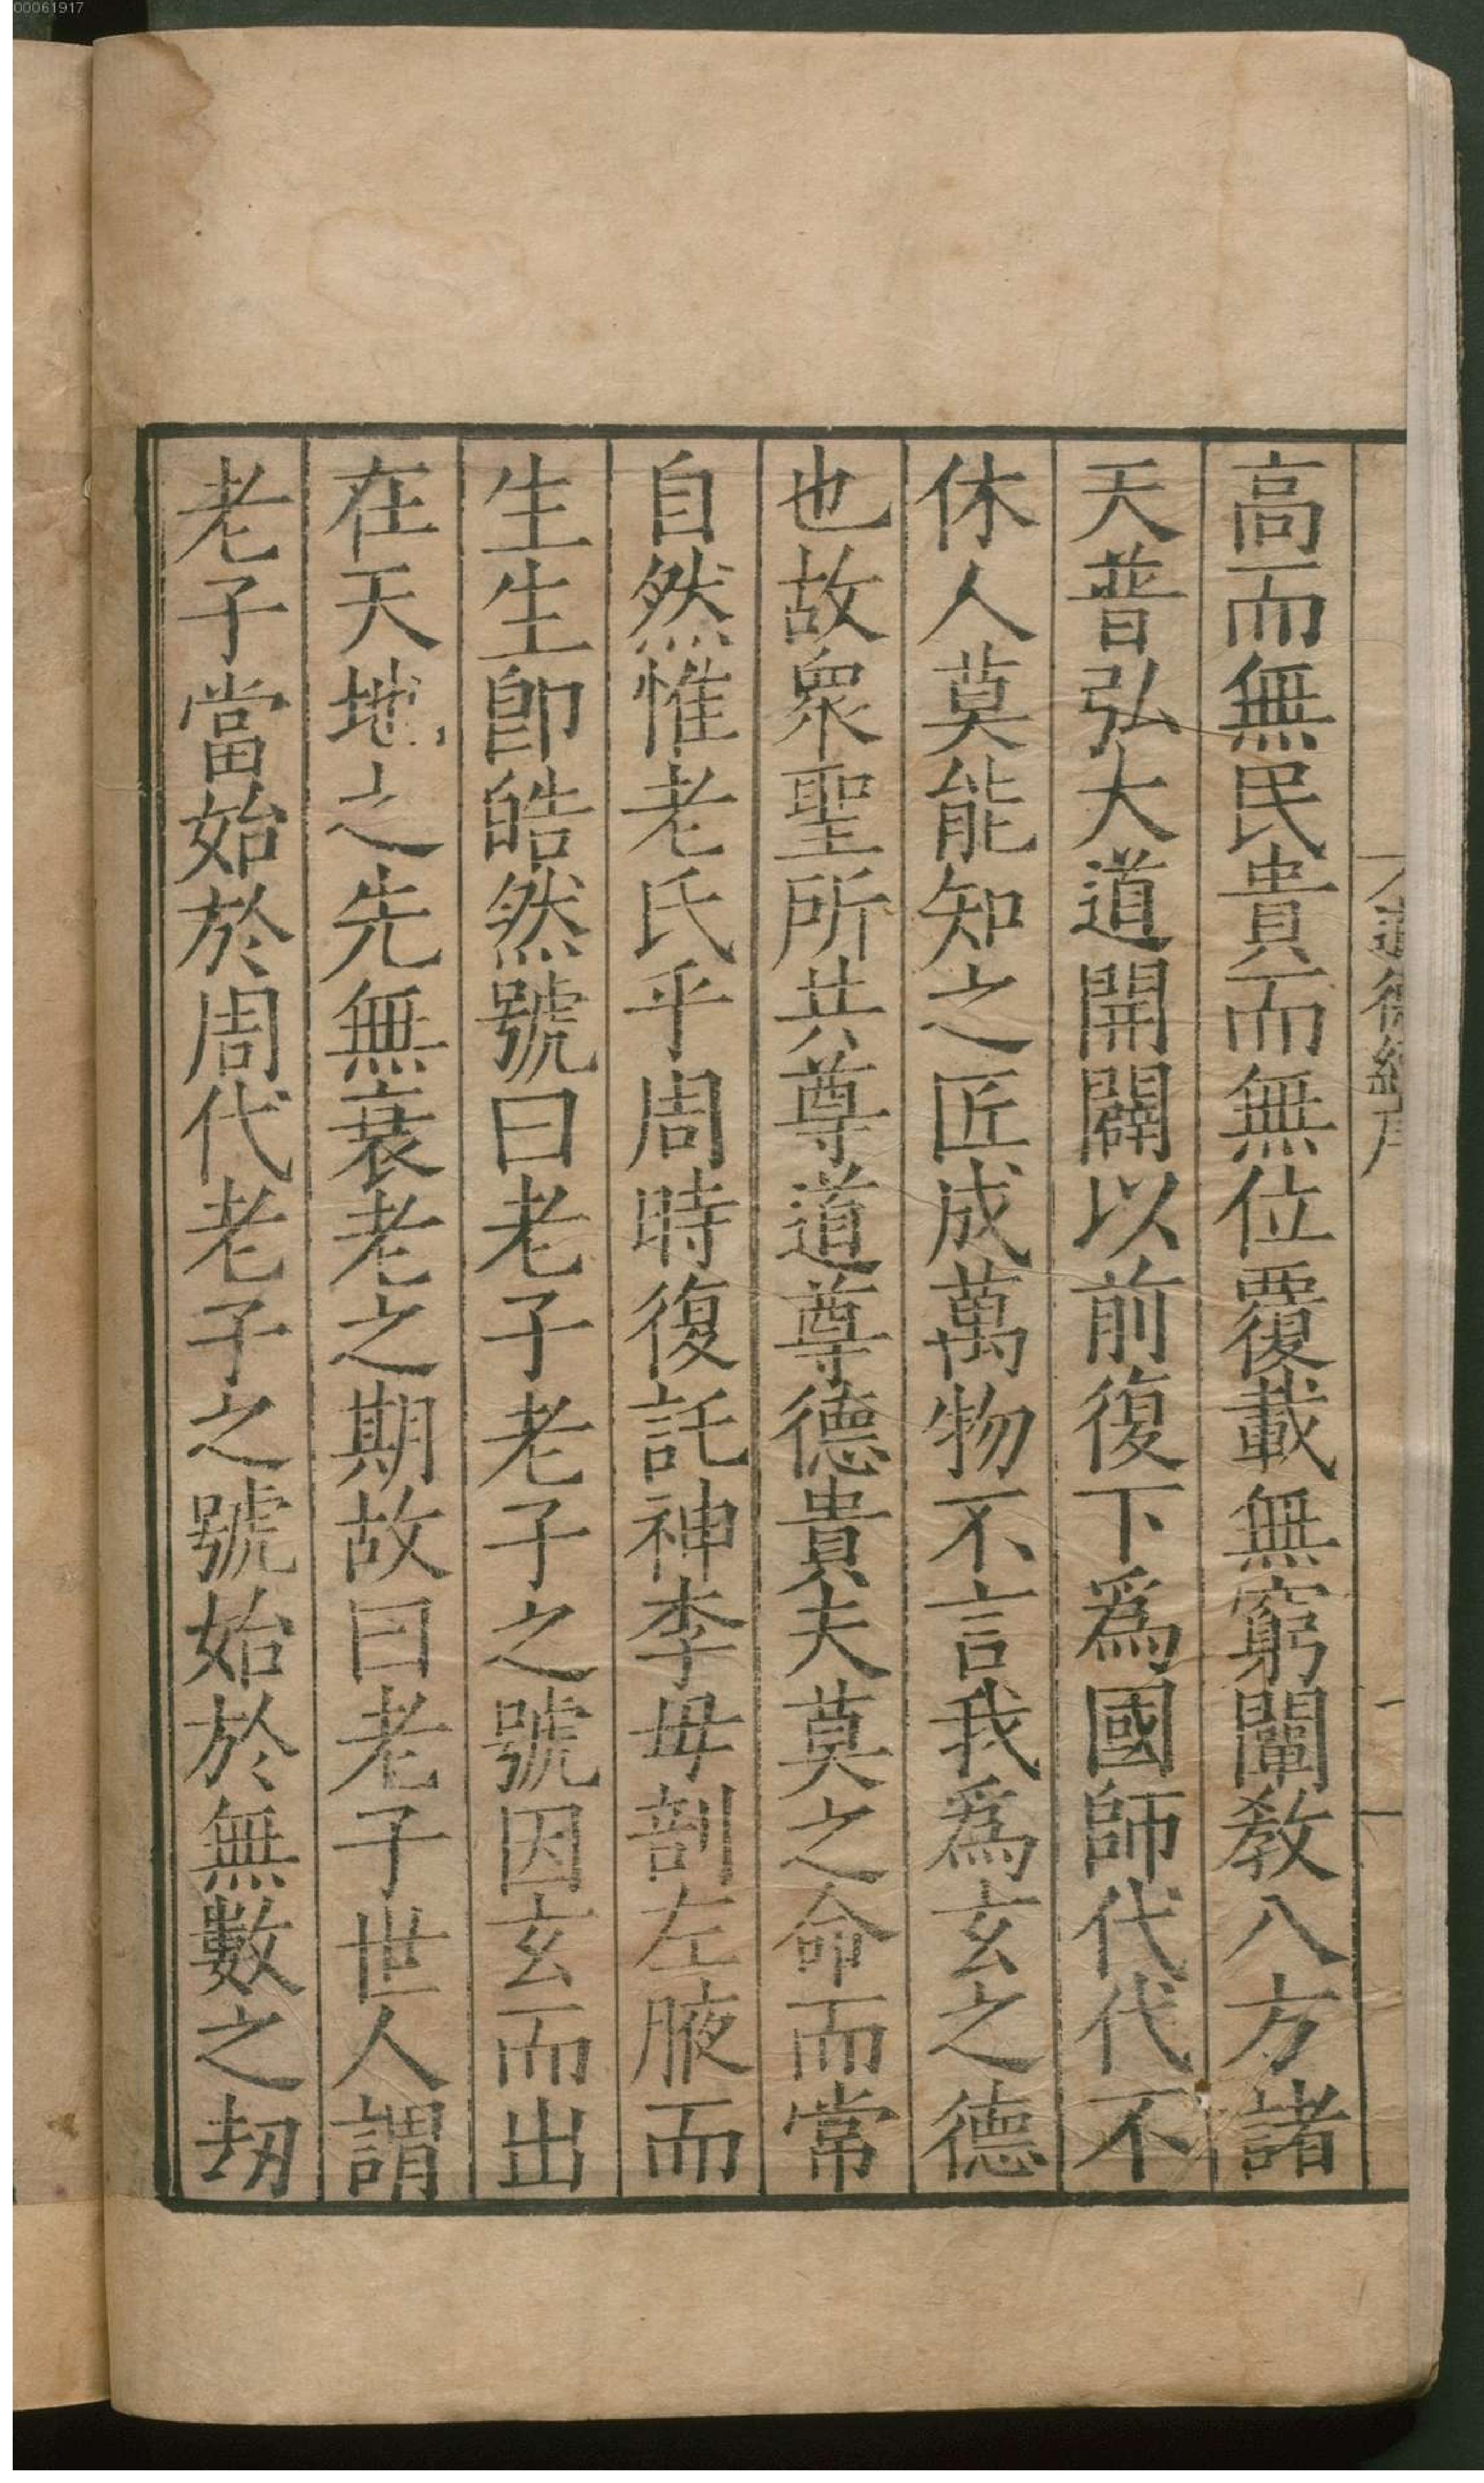 00061917
道德經序
高而無民貴而無位覆載無窮闡教八方諸
天普弘大道開闢以前復下爲國師代代不
休人莫能知之匠成萬物不言我爲玄之德
也故衆聖所共尊道尊德貴夫莫之命而常
自然惟老氏乎周時復託神李母剖左腋而
生生卽皓然號曰老子老子之號因玄而出
在天地之先無衰老之期故曰老子世人謂
老子當始於周代老子之號始於無數之刼